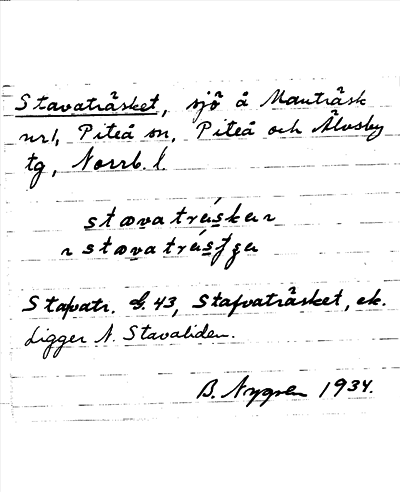 Stavaträsket, sjö å Manträsk
nr1, Piteå sn, Piteå och Älvsby
tg, Norrb. l.
stava träsken
stava träs
Stafvatr. G. 43, Stafvaträsket, ek.
Ligger N. Stavaliden.
B. Nygren 1934.